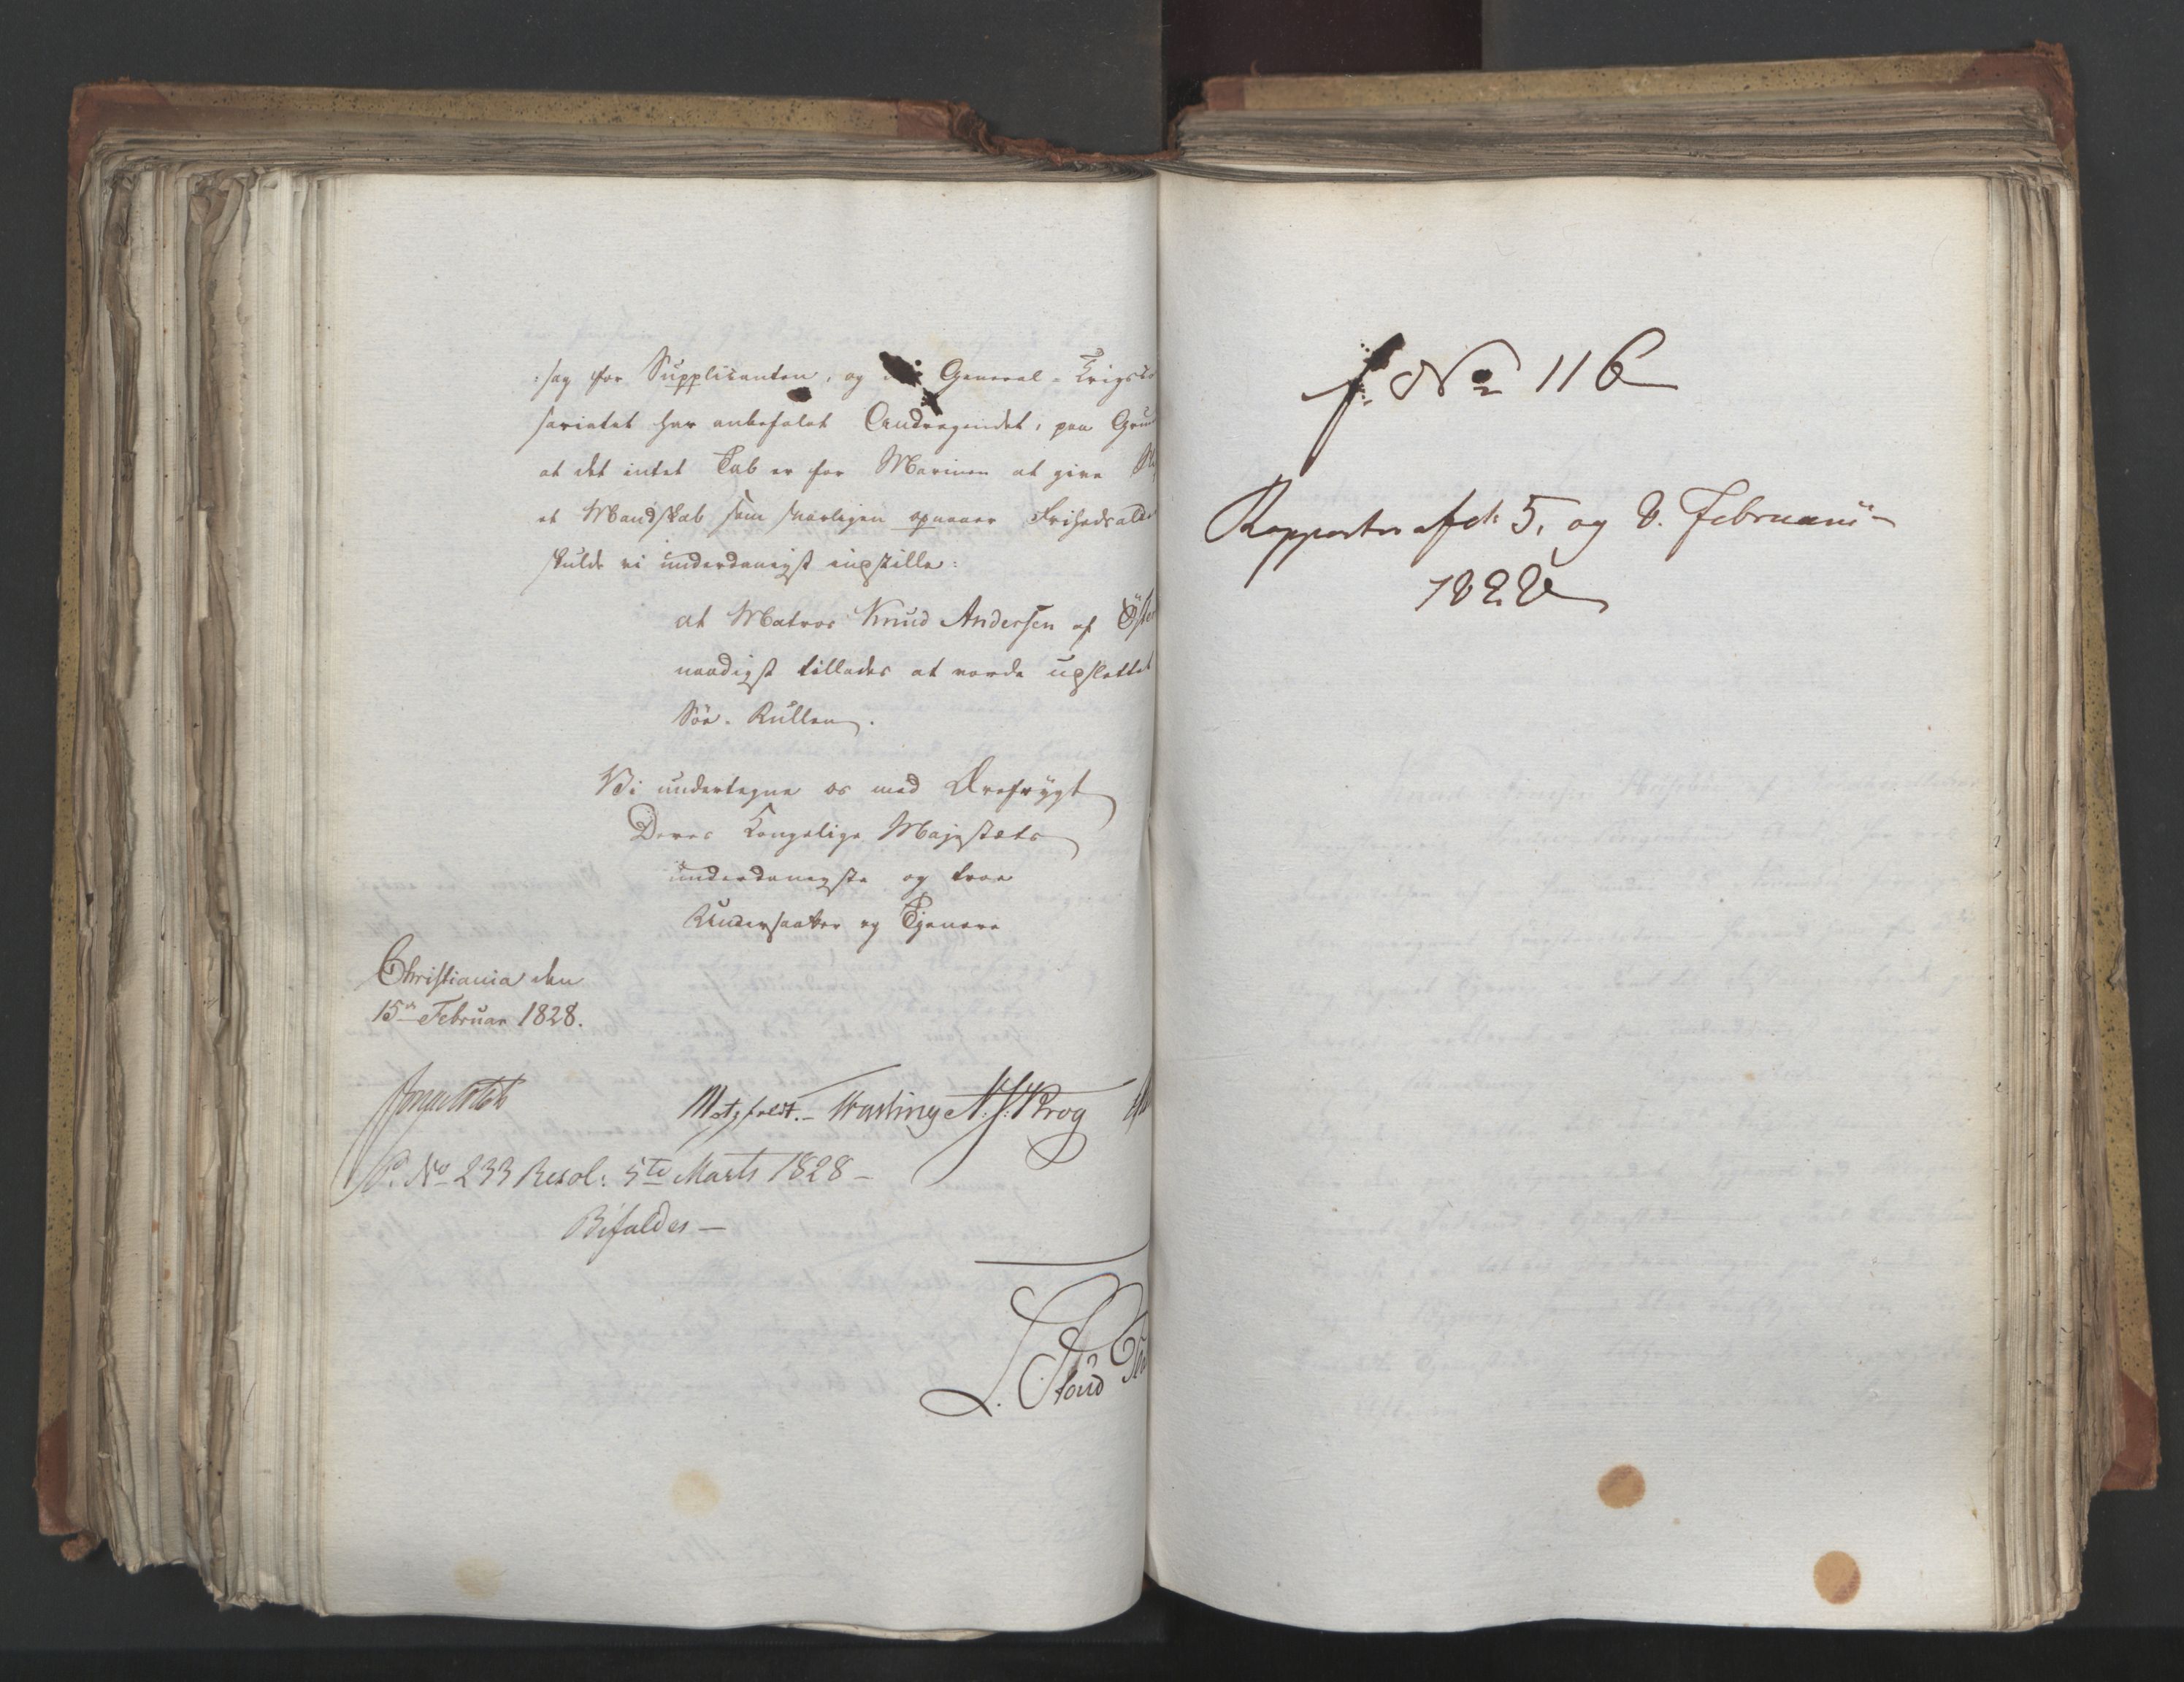 :sag for Supplicanten, og General-Krigsco
sariatet har anbefalet Andragendet, paa Grund
at det intet Tab er for Marinen at give
et Mandskab som snarligen opnaaer Frihedsalder
skulde vi underdanigst inpstille:
at Matros Knud Andersen af Öster
naadigst tillades at vorde upslettet
Söe-Rullen.
Vi undertegne os med Ærefrygt
Deres Kongelige Majestæts
underdanigste og troe
Undersaatter og Tjenere
Christiania den
15de Februar 1828.
Motzfeldt.- N. J. Krog
P. No 233 Resol: 5te Marts 1828 -
Bifaldes -
L.
f. No 116
Rapporter afd: 5, og 8. Februarii -
1828